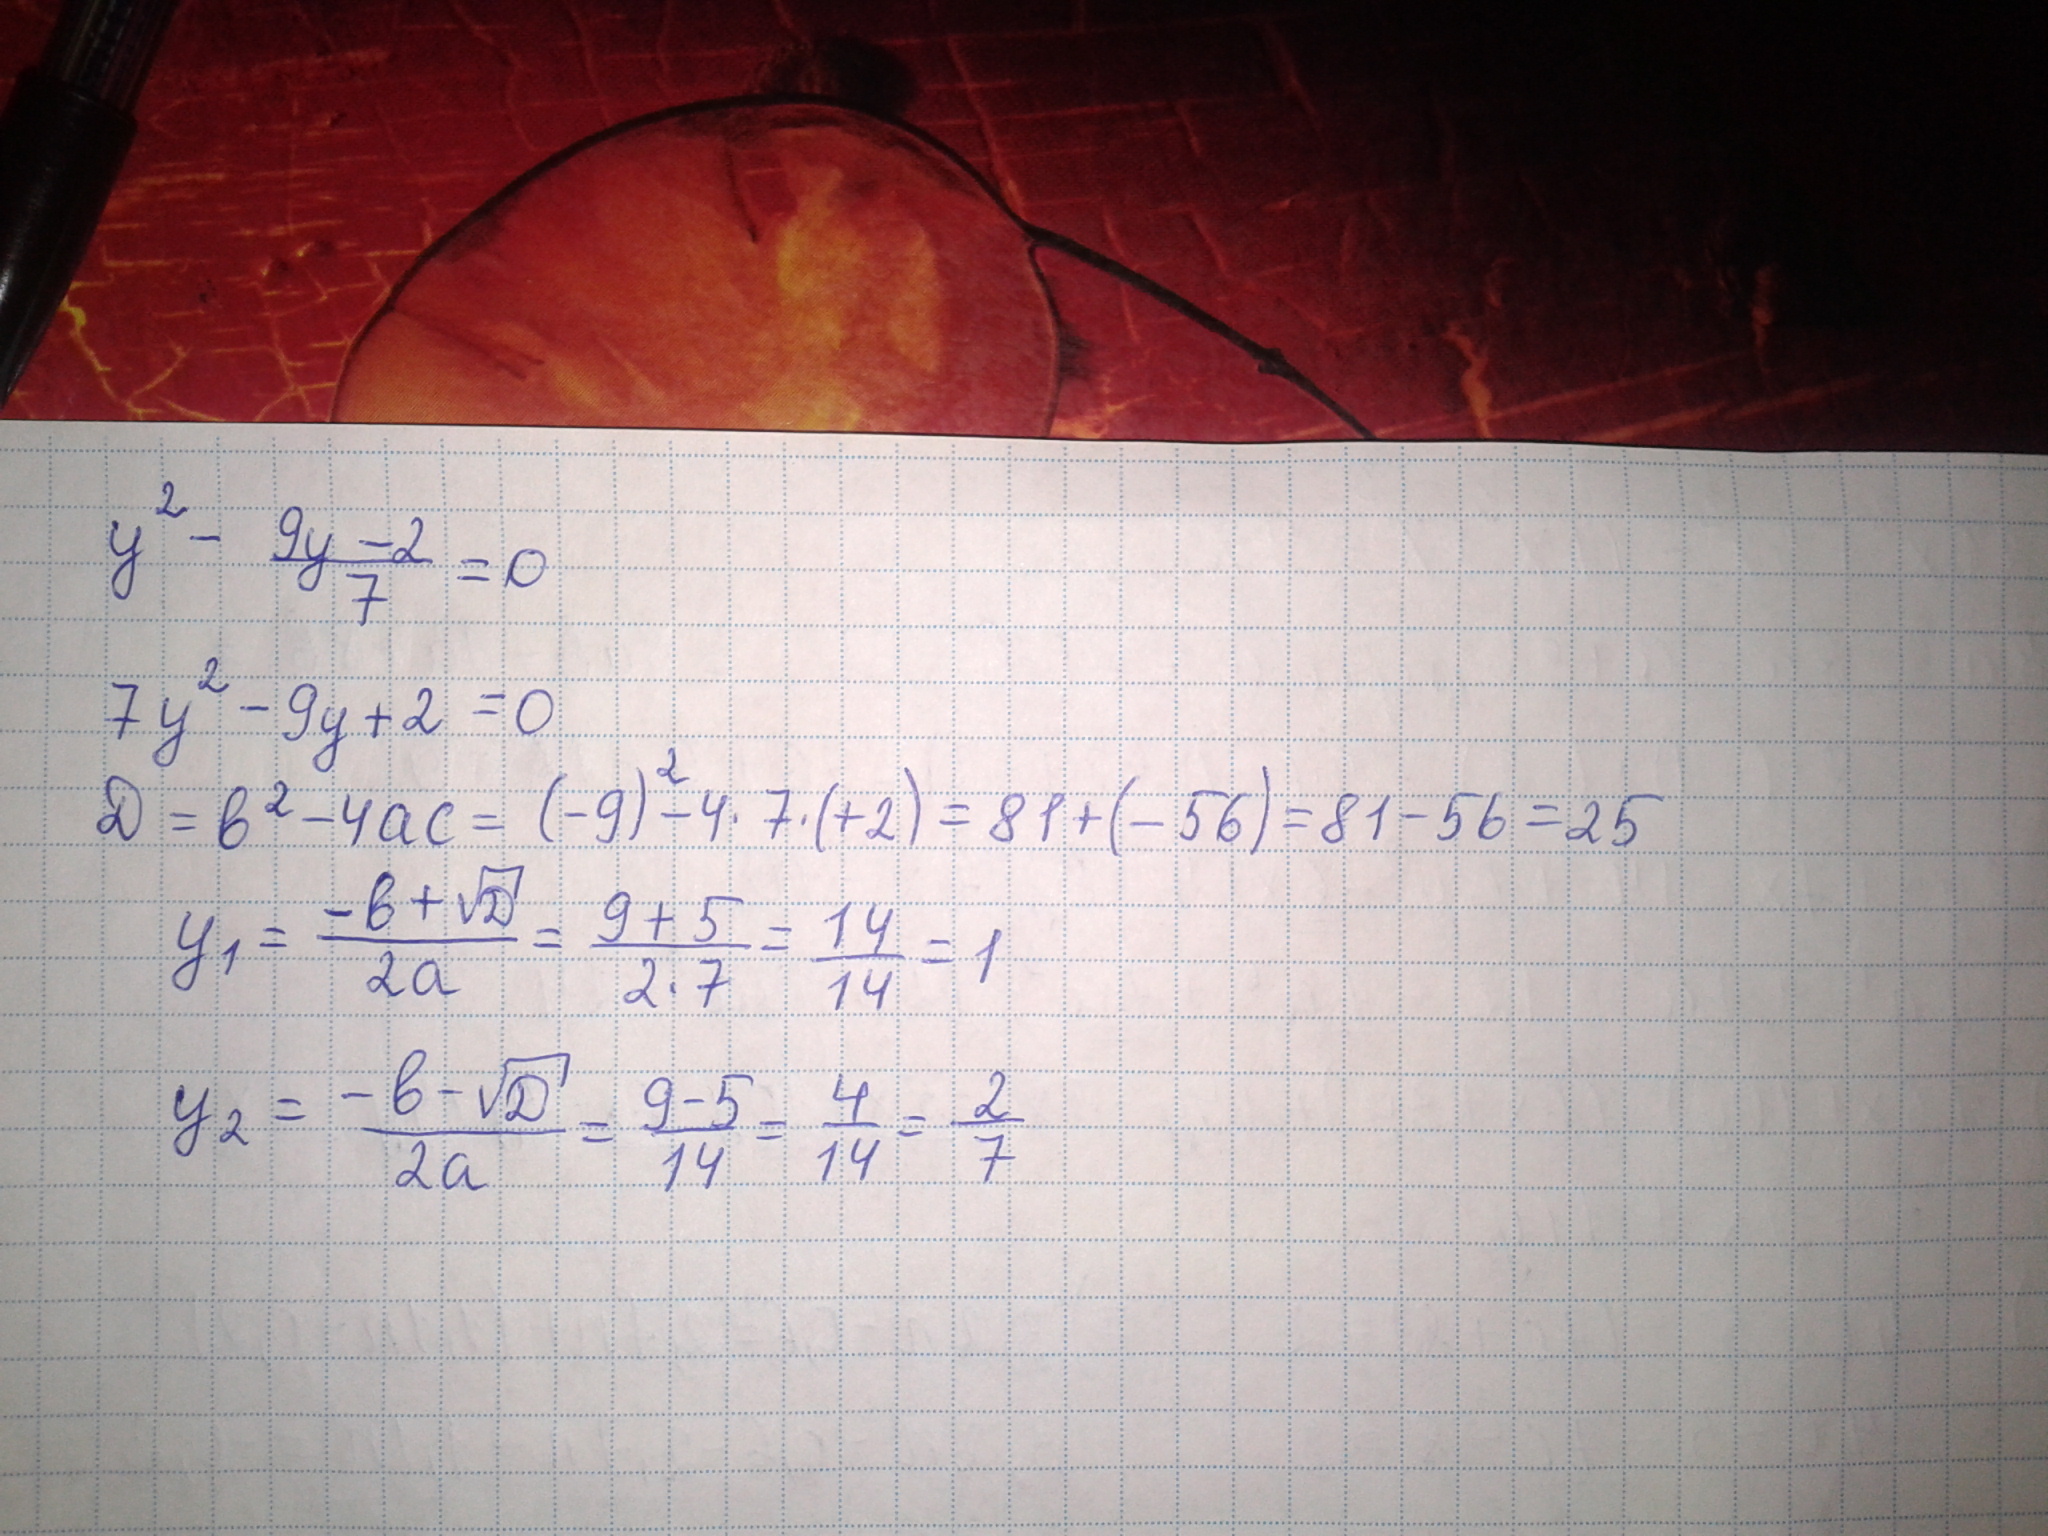 y² - (9y - 2)/7 = 0
7y² - 9y + 2 = 0
D = b² - 4ac = (-9)² - 4 · 7 · (+2) = 81 + (-56) = 81 - 56 = 25
y₁ = (-b + √D)/(2a) = (9 + 5)/(2 · 7) = 14/14 = 1
y₂ = (-b - √D)/(2a) = (9 - 5)/14 = 4/14 = 2/7